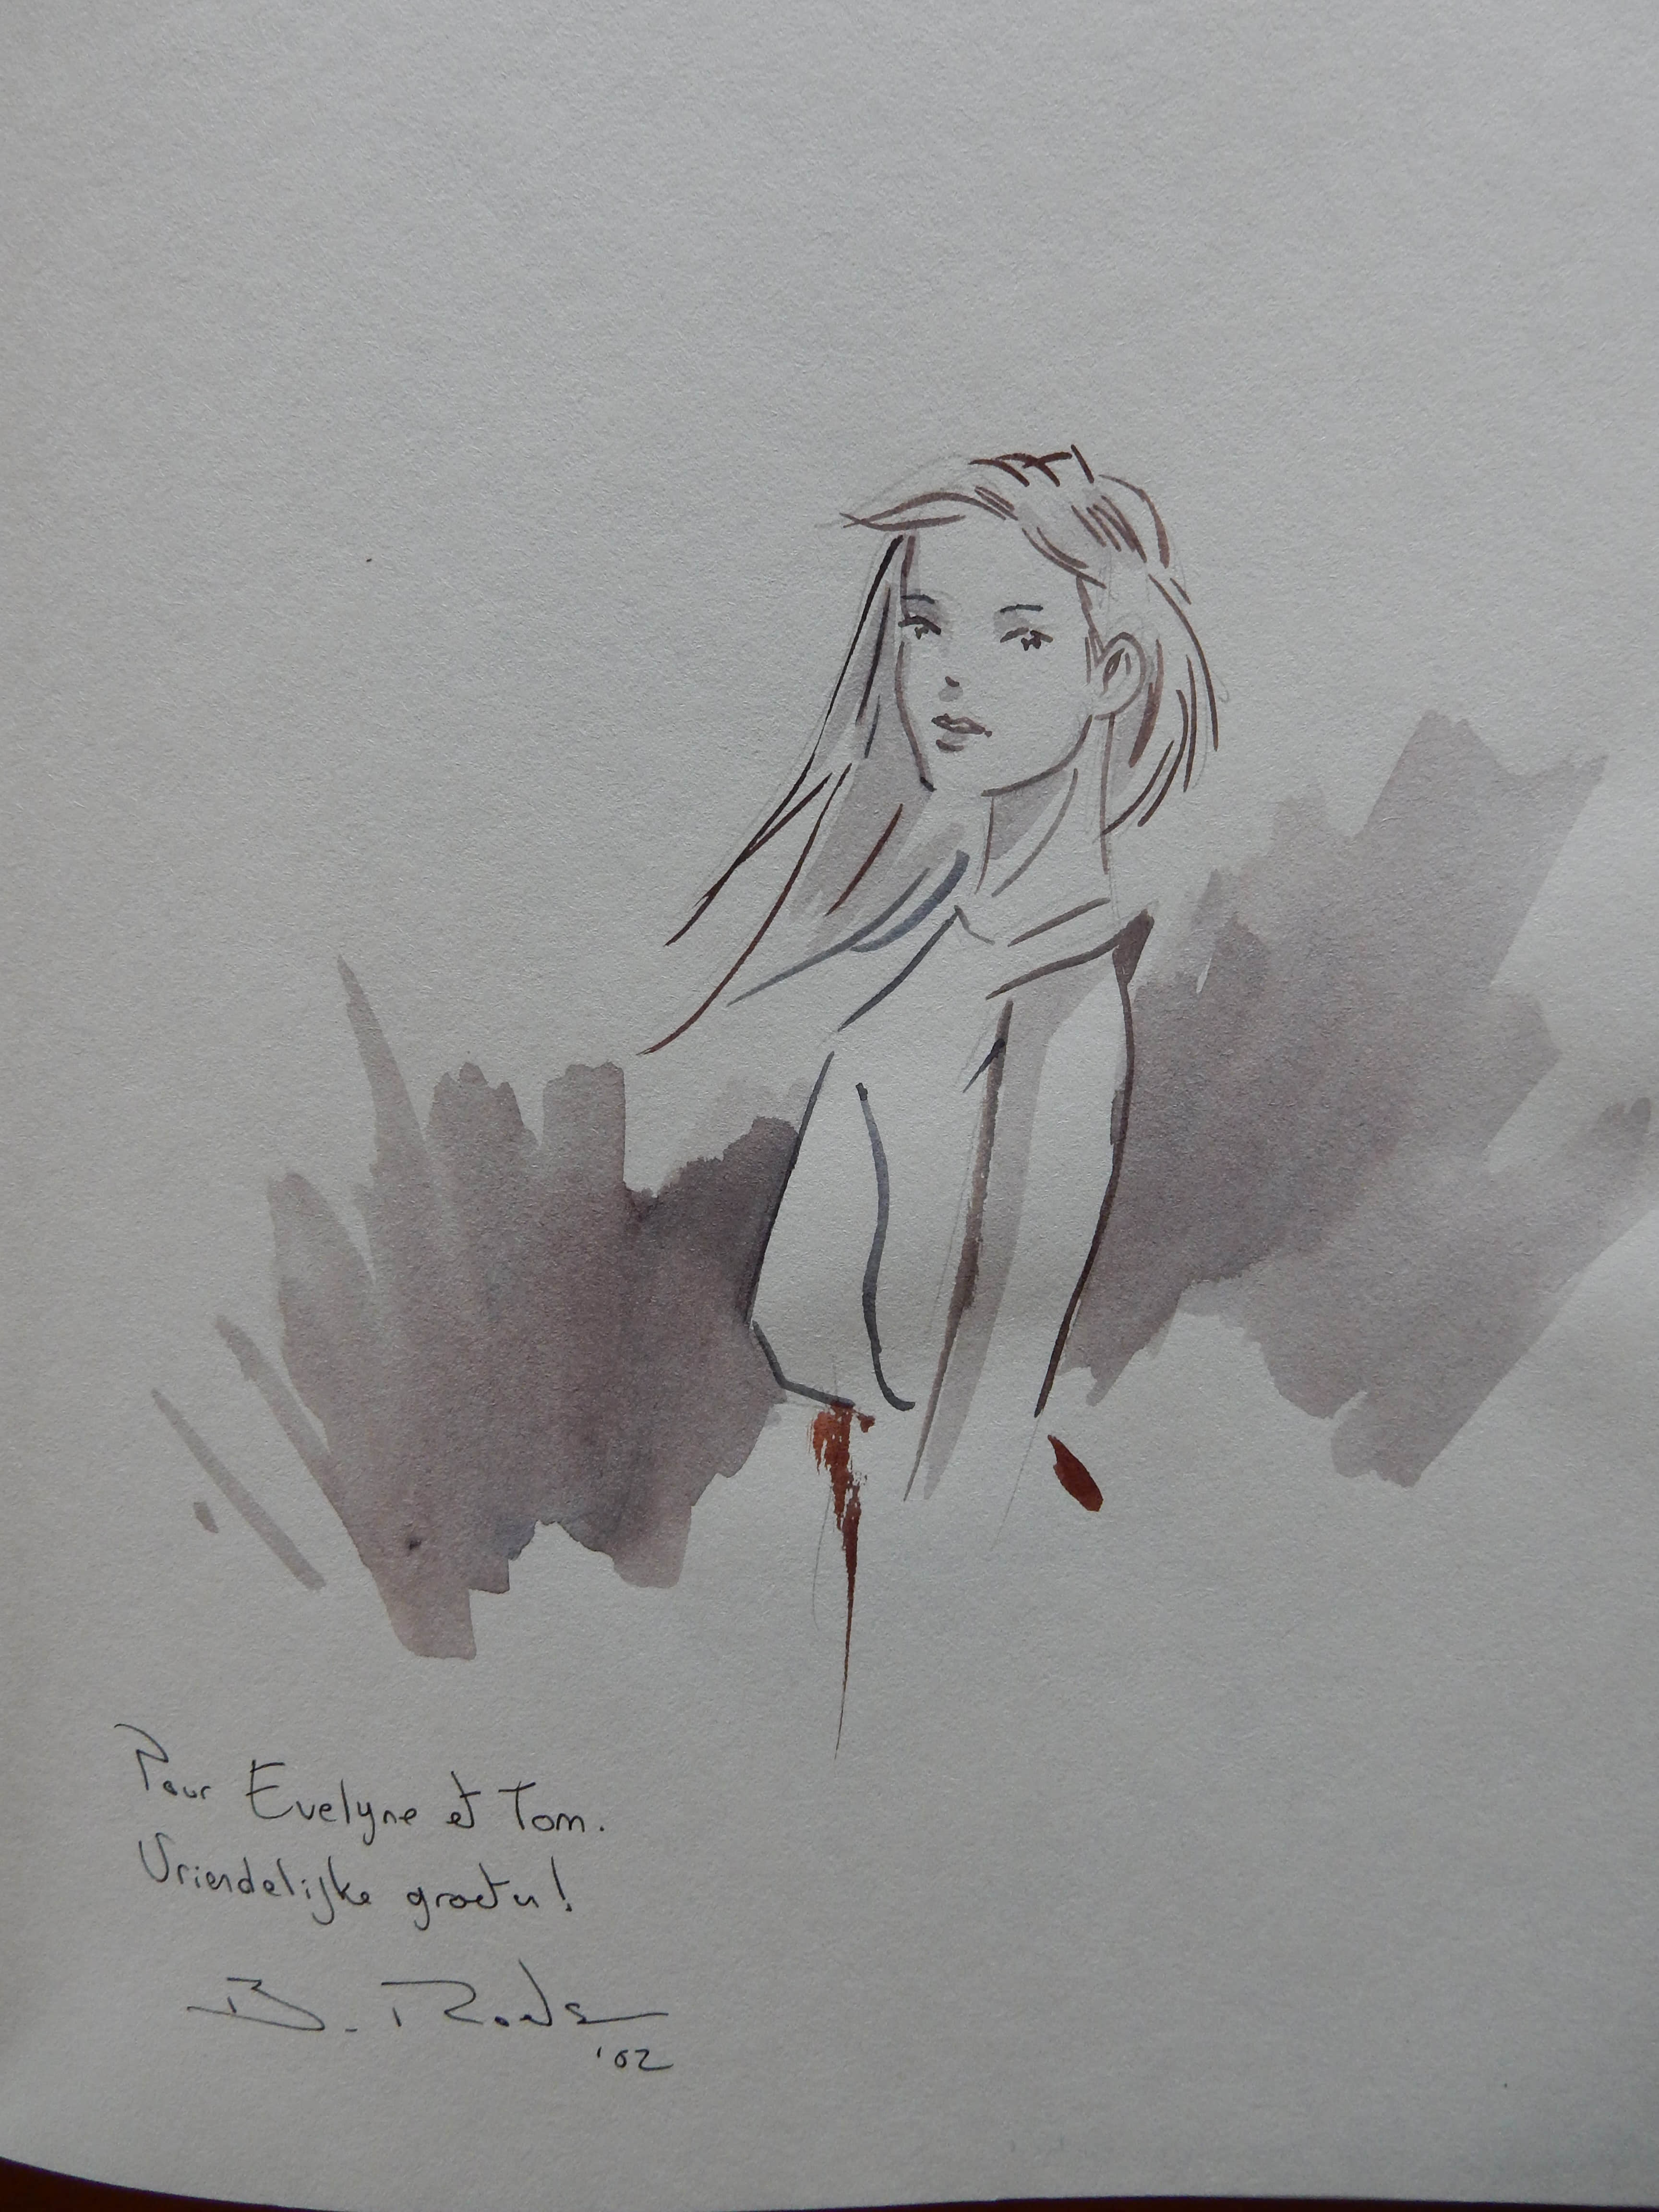 Pour Evelyne et Tom.
Vriendelijke groeten!
B.
'02